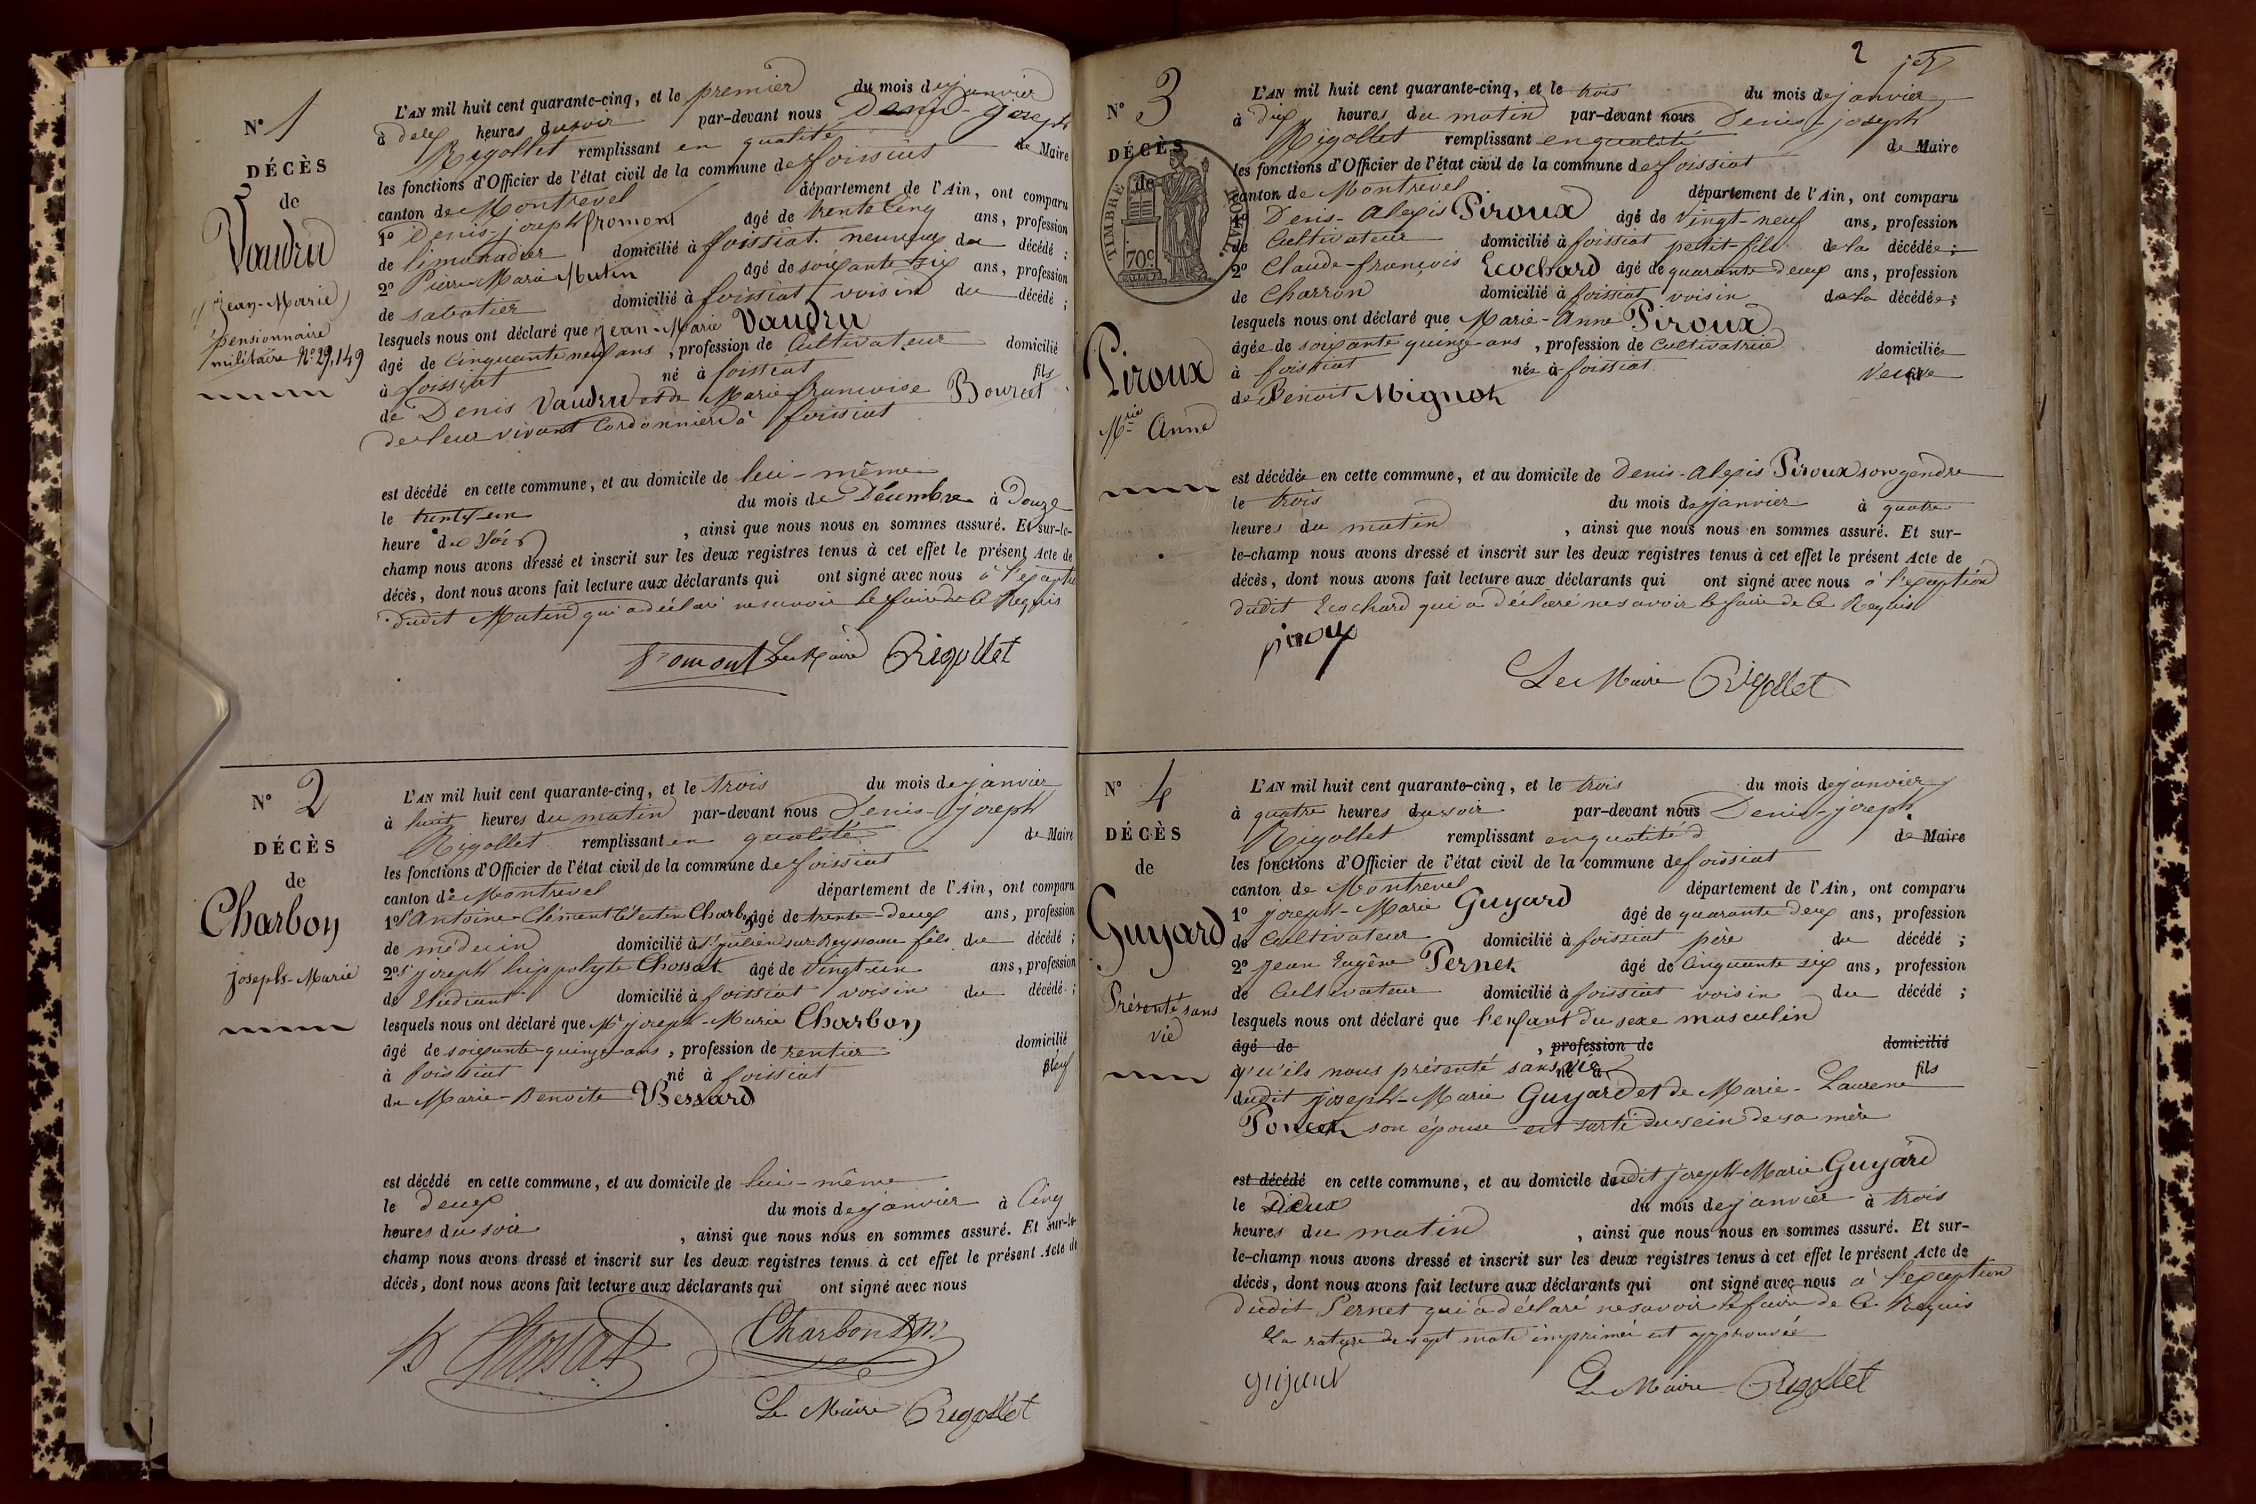 N° 1
DÉCÈS
de
Vaudru
(Jean-Marie)
pensionnaire
militaire N° 29,149
L'AN mil huit cent quarante-cinq, et le premier du mois de janvier
à deux heures du soir par-devant nous Denis-Joseph
Rigollet remplissant en qualité de Maire
les fonctions d'Officier de l'état civil de la commune de foissiat
canton de Montrevel département de l'Ain, ont comparu
1° Denis-joseph fromont âgé de trente cinq ans, profession
de limonadier domicilié à foissiat neveu du décédé ;
2° Pierre-Marie Mutin âgé de soixante six ans, profession
de sabotier domicilié à foissiat voisin du décédé ;
lesquels nous ont déclaré que jean-Marie Vaudru
âgé de cinquante neuf ans, profession de Cultivateur domicilié
à foissiat né à foissiat fils
de Denis Vaudru et de Marie françoise Bourcet
de leur vivant Cordonniers à foissiat
est décédé en cette commune, et au domicile de lui-même
le trente-un du mois de Décembre à Douze
heure du soir, ainsi que nous nous en sommes assuré. Et sur-le-
champ nous avons dressé et inscrit sur les deux registres tenus à cet effet le présent Acte de
décès, dont nous avons fait lecture aux déclarants qui ont signé avec nous à l'exception
dudit Mutin qui a déclaré ne savoir le faire de ce Requis
fromont Le Maire Rigollet
N° 2
DÉCÈS
de
Charbon
joseph-Marie
L'AN mil huit cent quarante-cinq, et le trois du mois de janvier
à huit heures du matin par-devant nous Denis-joseph
Rigollet remplissant en qualité de Maire
les fonctions d'Officier de l'état civil de la commune de foissiat
canton de Montrevel département de l'Ain, ont comparu
1° Sr Antoine-Clément Célestin Charbon âgé de trente-deux ans, profession
de médecin domicilié à St julien sur Reyssouze fils du décédé ;
2° Sr joseph hippolyte Chossat âgé de vingt-un ans, profession
de Etudiant domicilié à foissiat voisin du décédé ;
lesquels nous ont déclaré que Mr joseph-Marie Charbon
âgé de soixante-quinze ans, profession de rentier domicilié
à foissiat né à foissiat
de Marie-Benoite Bessard
est décédé en cette commune, et au domicile de lui-même
le deux du mois de janvier à Cinq
heures du soir, ainsi que nous nous en sommes assuré. Et sur-le-
champ nous avons dressé et inscrit sur les deux registres tenus à cet effet le présent Acte de
décès, dont nous avons fait lecture aux déclarants qui ont signé avec nous
h Chossat Charbon DM
Le Maire Rigollet
2
N° 3
DÉCÈS
de
TIMBRE ROYAL.
70c
Piroux
Mrie Anne
L'AN mil huit cent quarante-cinq, et le trois du mois de janvier
à dix heures du matin par-devant nous Denis-joseph
Rigollet remplissant en qualité de Maire
les fonctions d'Officier de l'état civil de la commune de foissiat
canton de Montrevel département de l'Ain, ont comparu
1° Denis-Alexis Piroux âgé de vingt-neuf ans, profession
de Cultivateur domicilié à foissiat petit-fils de la décédée ;
2° Claude-françois Ecochard âgé de quarante deux ans, profession
de Charron domicilié à foissiat voisin de la décédée ;
lesquels nous ont déclaré que Marie-Anne Piroux
âgée de soixante quinze ans, profession de Cultivatrice domiciliée
à foissiat née à foissiat veuve
de Benoit Mignot
est décédée en cette commune, et au domicile de Denis-Alexis Piroux son gendre
le trois du mois de janvier à quatre
heures du matin, ainsi que nous nous en sommes assuré. Et sur-
le-champ nous avons dressé et inscrit sur les deux registres tenus à cet effet le présent Acte de
décès, dont nous avons fait lecture aux déclarants qui ont signé avec nous à l'exception
dudit Ecochard qui a déclaré ne savoir le faire de ce Requis
piroux
Le Maire Rigollet
N° 4
DÉCÈS
de
Guyard
Présenté sans
vie
L'AN mil huit cent quarante-cinq, et le trois du mois de janvier
à quatre heures du soir par-devant nous Denis-joseph
Rigollet remplissant en qualité de Maire
les fonctions d'Officier de l'état civil de la commune de foissiat
canton de Montrevel département de l'Ain, ont comparu
1° joseph-Marie Guyard âgé de quarante deux ans, profession
de Cultivateur domicilié à foissiat père du décédé ;
2° jean Eugène Pernet âgé de Cinquante six ans, profession
de Cultivateur domicilié à foissiat voisin du décédé ;
lesquels nous ont déclaré que l'enfant du sexe masculin
âgé de , profession de domicilié
qu'ils nous présenté sans vie né à fils
dudit joseph-Marie Guyard et de Marie-Laurence
Poncet son épouse est sorti du sein de sa mère
est décédé en cette commune, et au domicile dudit joseph-Marie Guyard
le Deux du mois de janvier à trois
heures du matin, ainsi que nous nous en sommes assuré. Et sur-
le-champ nous avons dressé et inscrit sur les deux registres tenus à cet effet le présent Acte de
décès, dont nous avons fait lecture aux déclarants qui ont signé avec nous à l'exception
dudit Pernet qui a déclaré ne savoir le faire de ce Requis
La rature de sept mots imprimés est approuvée
guyard Le Maire Rigollet